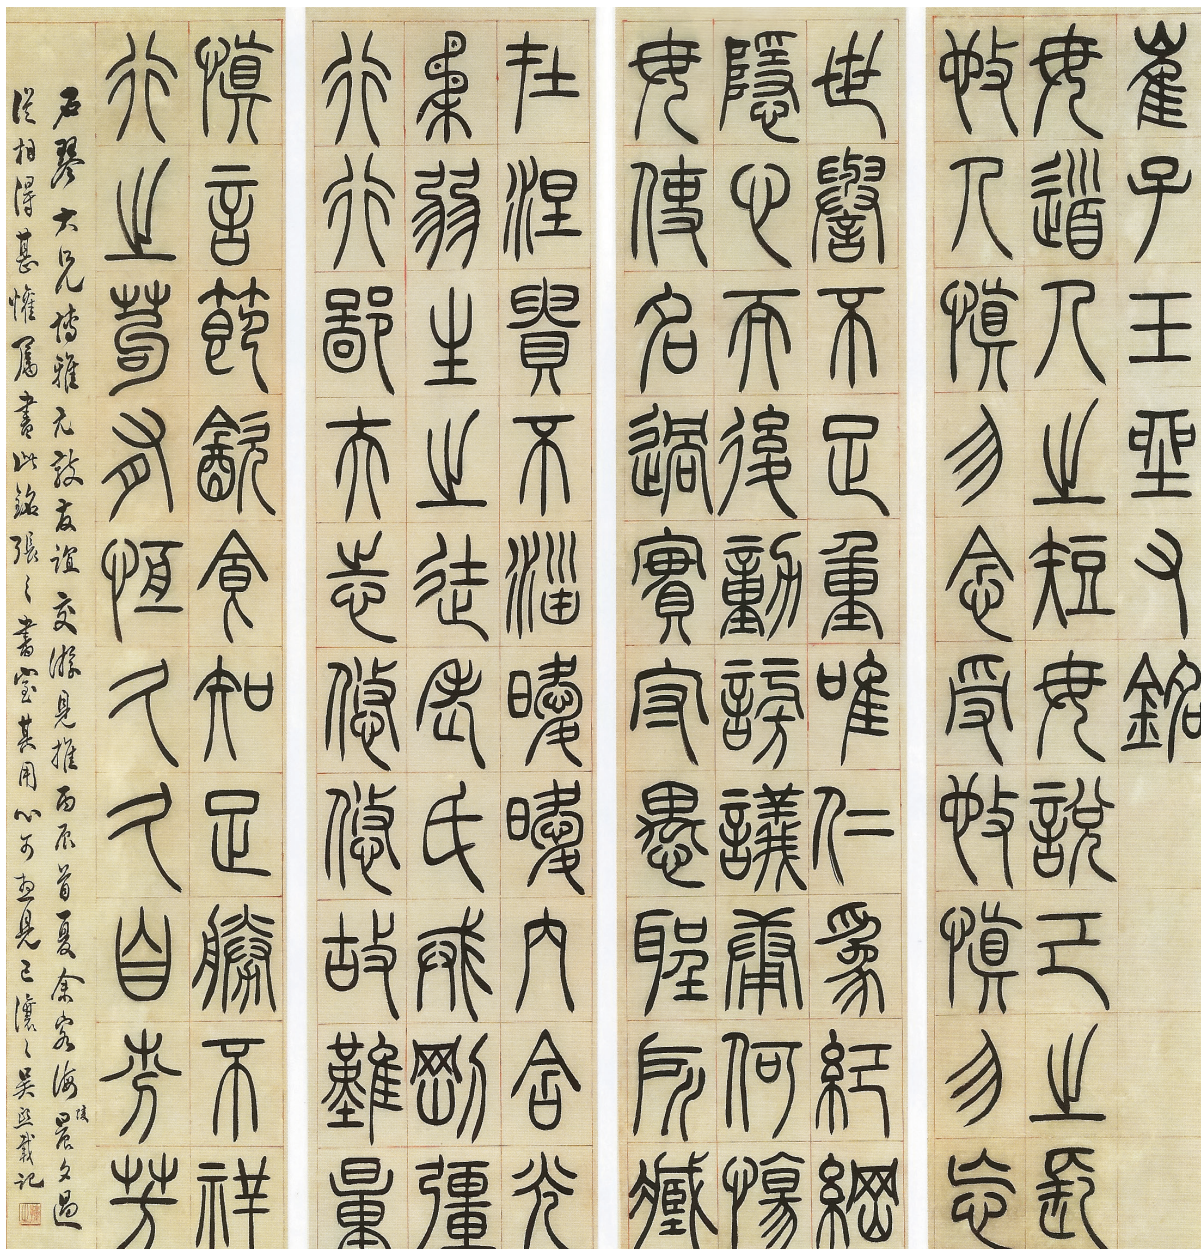 崔子玉坐右銘
毋道人之短毋說己之長
施人慎勿念受施慎勿忘
世譽不足重唯仁為紀綱
隱心而後動謗議庸何傷
毋使名過實守愚聖所臧
在涅貴不淄曖曖內含光
柔弱生之徒老氏戒剛彊
行行鄙夫志悠悠故難量
慎言節飲食知足勝不祥
行之苟有恆久久自芬芳
石琴大兄博雅元敦友誼交游見推丙辰首夏余客海陵晨夕過
從相得甚懽屬書此銘張之書室其用心可想見已讓之吳熙載記